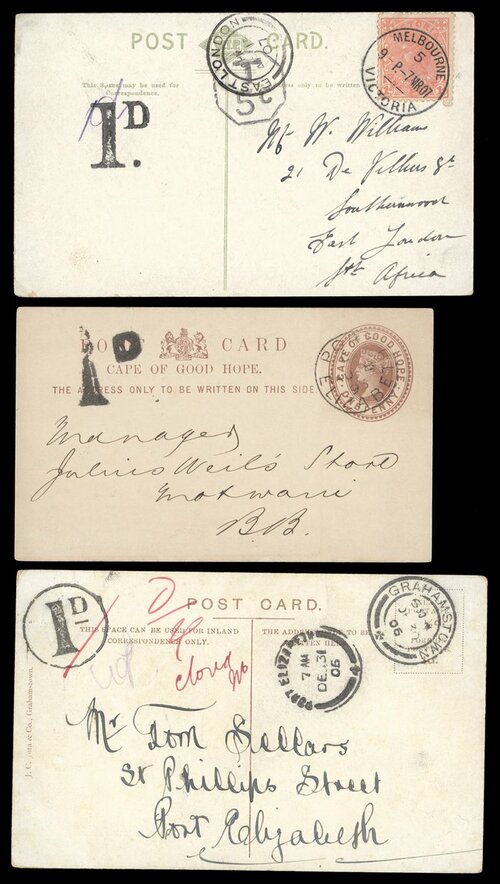 POST CARD.
EAST LONDON
5c
MELBOURNE
5
9 P-7MR07
VICTORIA
This Space may be used for
Correspondence.
only to be written
1D.
W. Williams
21 De Villiers St.
Southernwood
East London
Sth Africa
POST CARD
CAPE OF GOOD HOPE.
THE ADDRESS ONLY TO BE WRITTEN ON THIS SIDE
CAPE OF GOOD HOPE
ONE PENNY
1D
Manager
Julius Weil's Store
B.B.
1D
POST CARD.
THIS SPACE CAN BE USED FOR INLAND
CORRESPONDENCE ONLY.
THE ADDRESS TO BE
WRITTEN HERE.
GRAHAMSTOWN
06
PORT ELIZABETH
7 AM
DE 31
06
J. C. & Co., Graham-town.
Mr Tom Sellars
St Phillips Street
Port Elizabeth